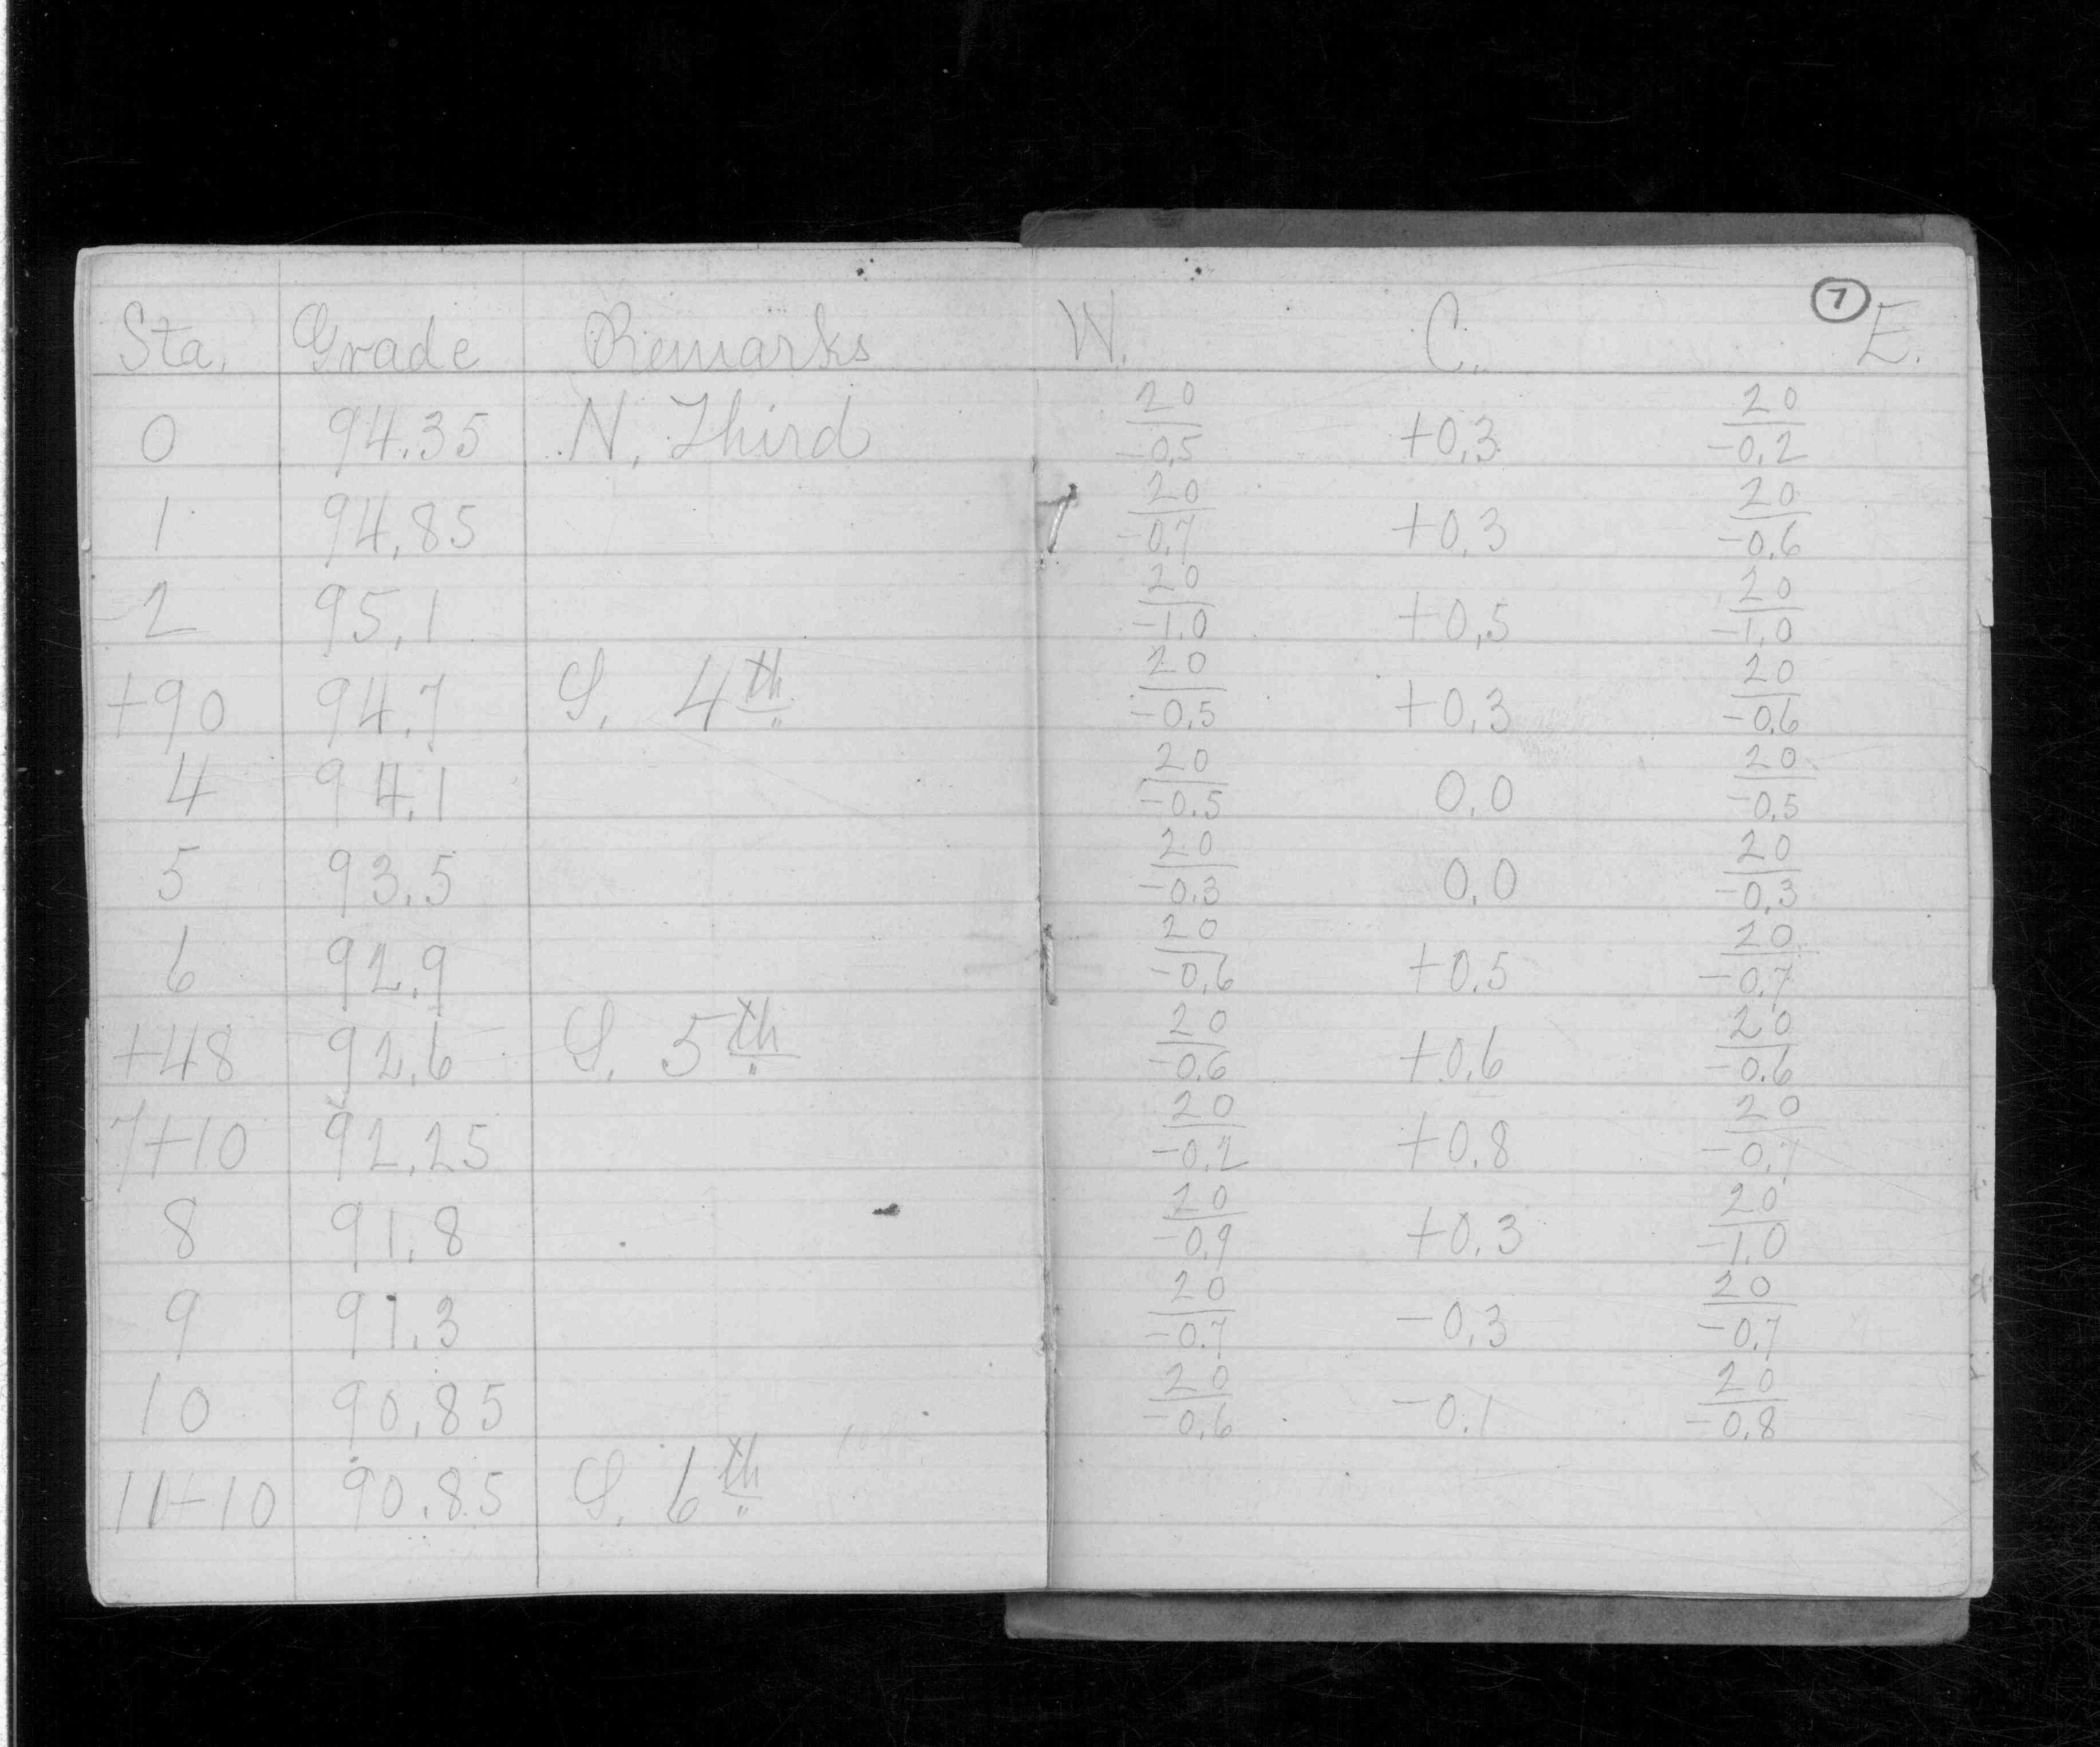 7
Sta. Grade Remarks W. C. E.
0 94.35 N. Third 20/-0.5 +0.3 20/-0.2
1 94.85 20/-0.7 +0.3 20/-0.6
2 95.1 20/-1.0 +0.5 20/-1.0
+90 94.7 S. 4th 20/-0.5 +0.3 20/-0.6
4 94.1 20/-0.5 0.0 20/-0.5
5 93.5 20/-0.3 0.0 20/-0.3
6 92.9 20/-0.6 +0.5 20/-0.7
+48 92.6 S. 5th 20/-0.6 +0.6 20/-0.6
7+10 92.25 20/-0.2 +0.8 20/-0.7
8 91.8 20/-0.9 +0.3 20/-1.0
9 91.3 20/-0.7 -0.3 20/-0.7
10 90.85 20/-0.6 -0.1 20/-0.8
11+10 90.85 S. 6th